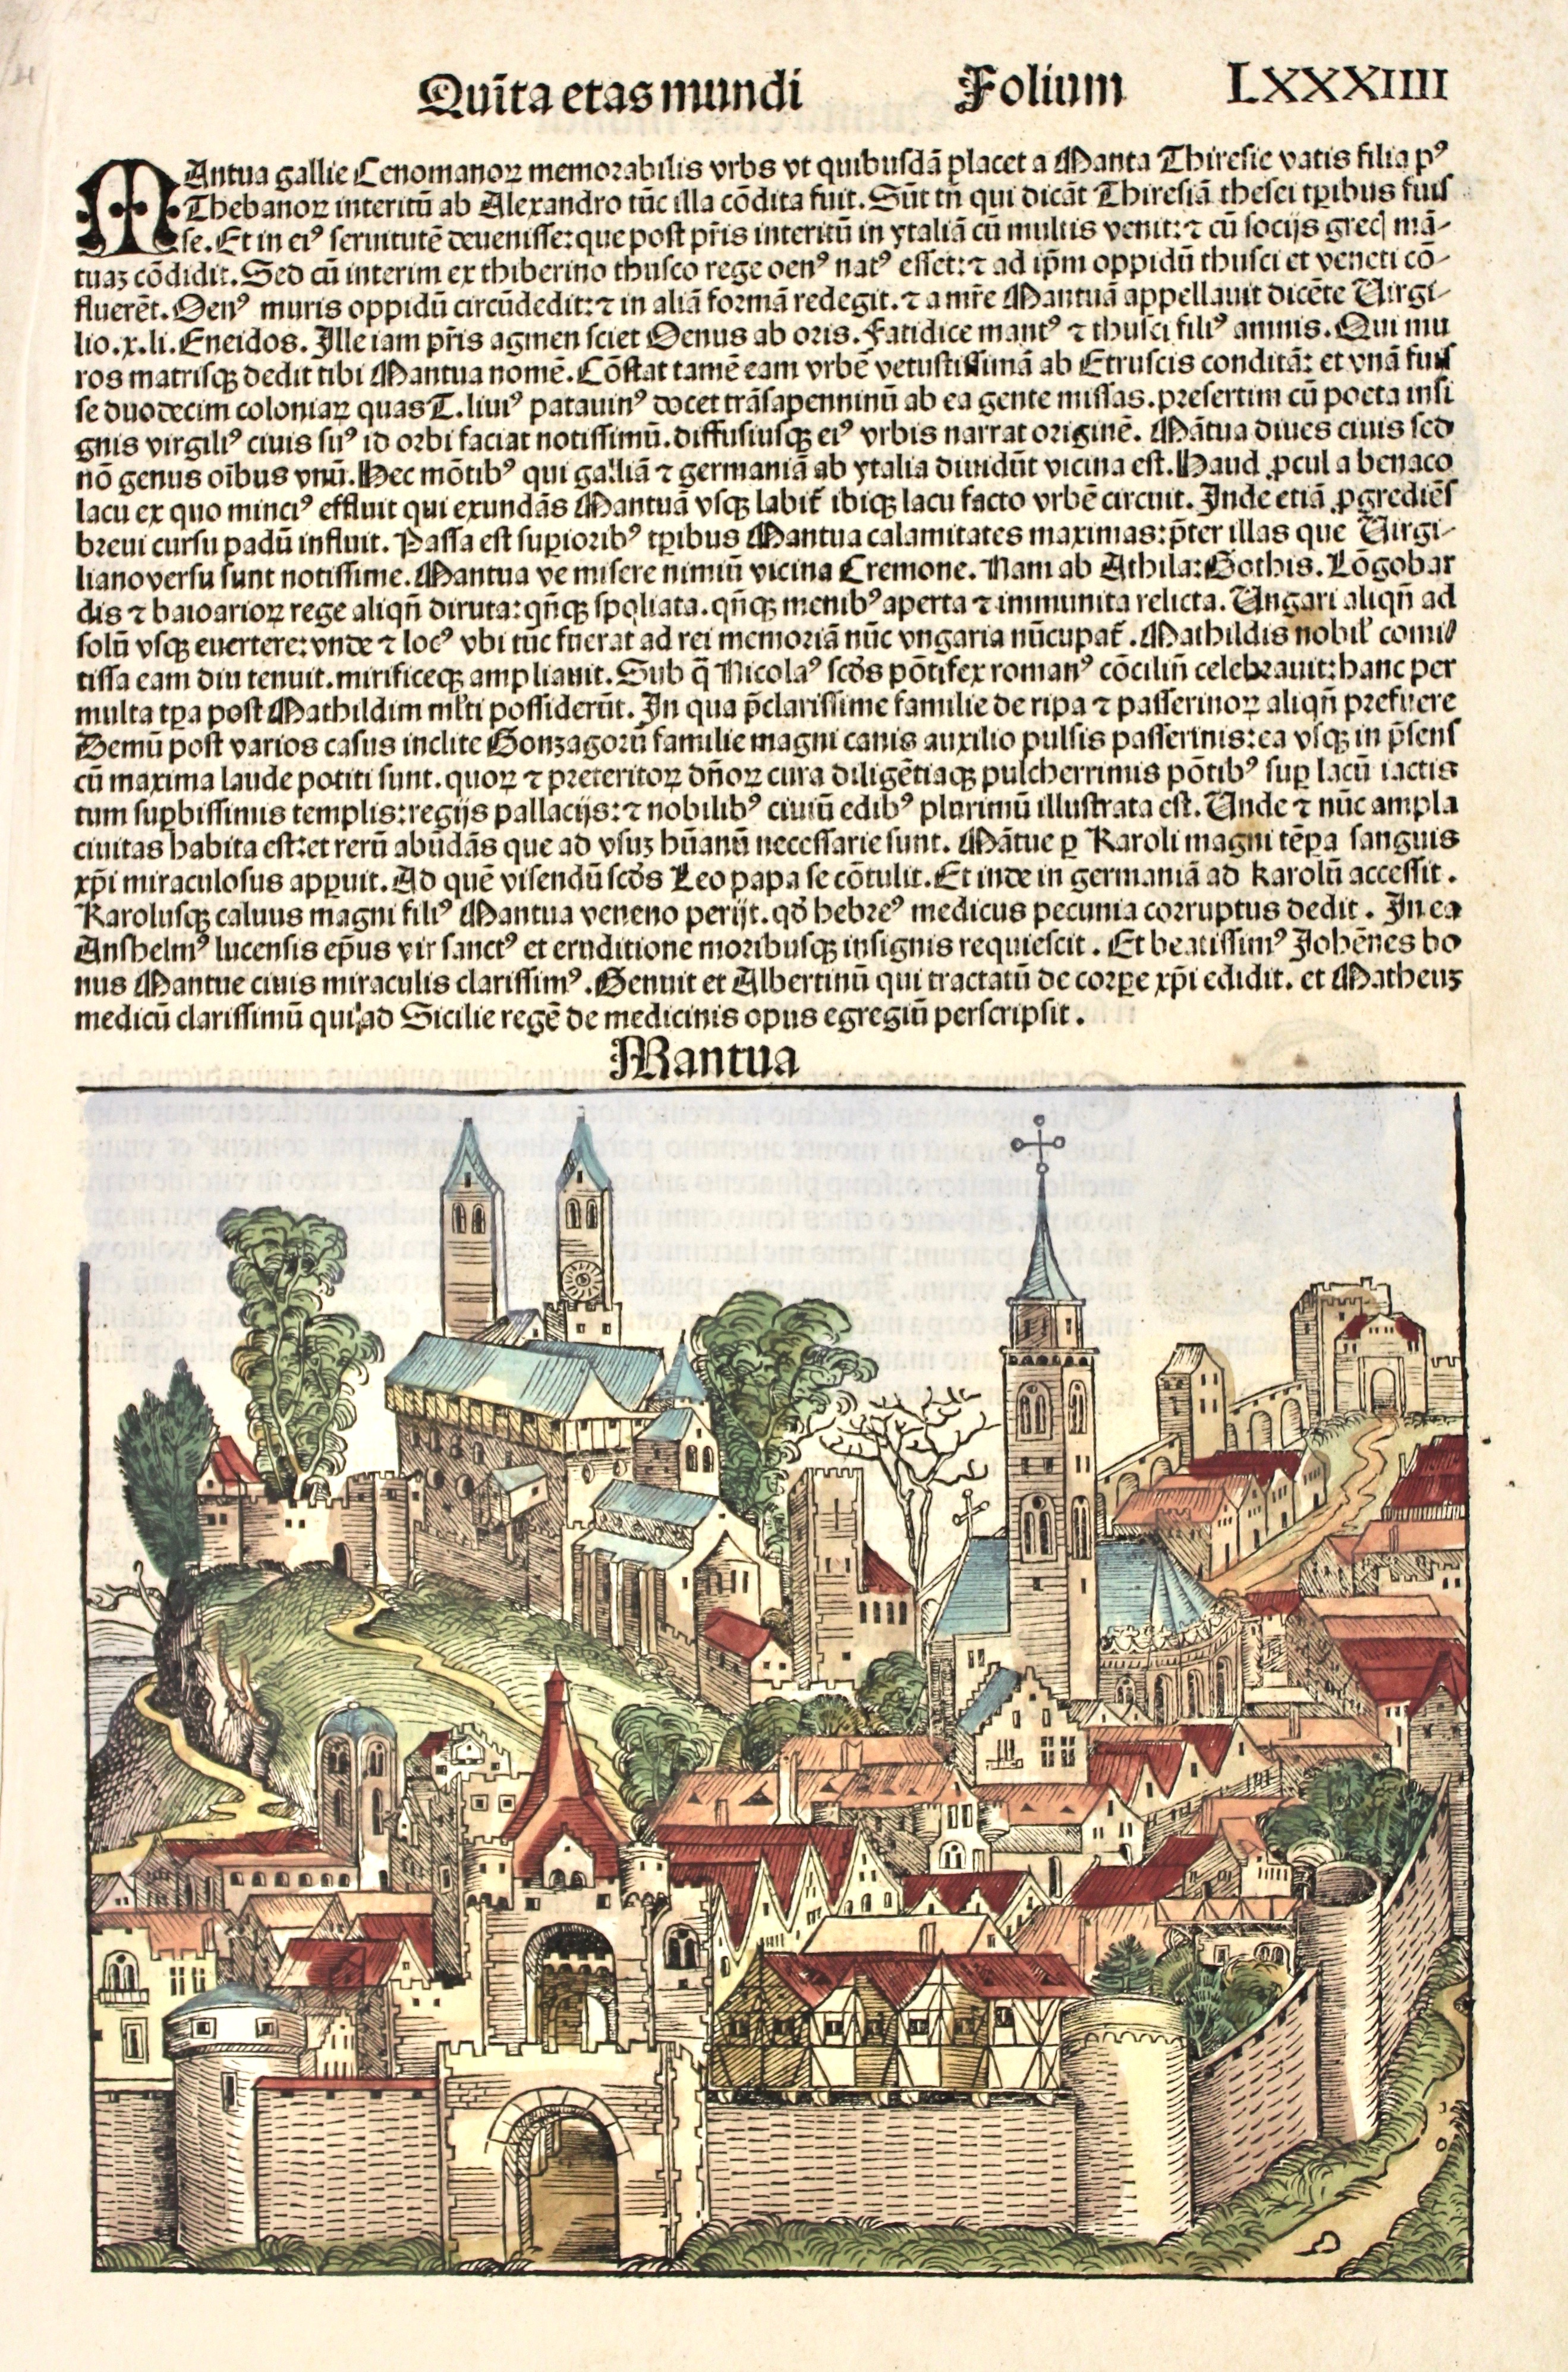 Quīta etas mundi Folium LXXXIIII
MAntua gallie Cenomanoꝝ memorabilis vrbs vt quibusdā placet a Manta Thiresie vatis filia pꝰ
Thebanoꝝ interitū ab Alexandro tūc illa cōdita fuit. Sūt tñ qui dicāt Thiresiā thesei tꝑibus fuis
se. Et in eiꝰ seruitutē deuenisse: que post pr̄is interitū in ytaliā cū multis venit: ⁊ cū socijs grecꝭ mā-
tuaꝫ cōdidit. Sed cū interim ex thiberino thusco rege oenꝰ natꝰ esset: ⁊ ad ip̄m oppidū thusci et veneti cō-
fluerēt. Oenꝰ muris oppidū circūdedit: ⁊ in aliā formā redegit. ⁊ a mr̄e Mantuā appellauit dicēte Virgi-
lio .x. li. Eneidos. Ille iam pr̄is agmen sciet Oenus ab oris. Fatidice mantꝰ ⁊ thusci filiꝰ amnis. Qui mu
ros matrisqꝫ dedit tibi Mantua nomē. Cōstat tamē eam vrbē vetustissimā ab Etruscis conditā: et vnā fuis
se duodecim coloniaꝝ quas T. liuiꝰ patauinꝰ docet trāsapenninū ab ea gente missas. presertim cū poeta insi
gnis virgiliꝰ ciuis suꝰ id orbi faciat notissimū. diffusiusqꝫ eiꝰ vrbis narrat originē. Mātua diues ciuis sed
nō genus oībus vnū. Hec mōtibꝰ qui galliā ⁊ germaniā ab ytalia diuidūt vicina est. Haud ꝓcul a benaco
lacu ex quo minciꝰ effluit qui exundās Mantuā vsqꝫ labit̄ ibiqꝫ lacu facto vrbē circuit. Inde etiā ꝓgrediēs
breui cursu padū influit. Passa est superioribꝰ tꝑibus Mantua calamitates maximas: p̄ter illas que Virgi-
liano versu sunt notissime. Mantua ve misere nimiū vicina Cremone. Nam ab Athila: Gothis. Lōgobar
dis ⁊ baioarioꝝ rege aliqñ diruta: qñqꝫ spoliata. qñqꝫ menibꝰ aperta ⁊ immunita relicta. Vngari aliqñ ad
solū vsqꝫ euertere: vnde ⁊ locꝰ vbi tūc fuerat ad rei memoriā nūc vngaria nūcupat̄. Mathildis nobil' comi
tissa eam diu tenuit. mirificeqꝫ ampliauit. Sub q̄ Nicolaꝰ scd̄s pōtifex romanꝰ cōciliū celebrauit: hanc per
multa tꝑa post Mathildim ml'ti possiderūt. In qua p̄clarissime familie de ripa ⁊ passerinoꝝ aliqñ prefuere
Demū post varios casus inclite Gonzagorū familie magni canis auxilio pulsis passerinis: ea vsqꝫ in p̄sens
cū maxima laude potiti sunt. quoꝝ ⁊ preteritoꝝ dñoꝝ cura diligētiaqꝫ pulcherrimis pōtibꝰ suꝑ lacū iactis
tum suꝑbissimis templis: regijs pallacijs: ⁊ nobilibꝰ ciuiū edibꝰ plurimū illustrata est. Vnde ⁊ nūc ampla
ciuitas habita est: et rerū abūdās que ad vsuꝫ hūanū necessarie sunt. Mātue ꝑ Karoli magni tēpa sanguis
xp̄i miraculosus apꝑuit. Ad quē visendū scd̄s Leo papa se cōtulit. Et inde in germaniā ad karolū accessit.
Karolusqꝫ caluus magni filiꝰ Mantua veneno perijt. qd̄ hebreꝰ medicus pecunia corruptus dedit. In ea
Anshelmꝰ lucensis ep̄us vir sanctꝰ et eruditione moribusqꝫ insignis requiescit. Et beatissimꝰ Johēnes bo
nus Mantue ciuis miraculis clarissimꝰ. Genuit et Albertinū qui tractatū de corꝑe xp̄i edidit. et Matheuꝫ
medicū clarissimū qui ad Sicilie regē de medicinis opus egregiū perscripsit.
Mantua